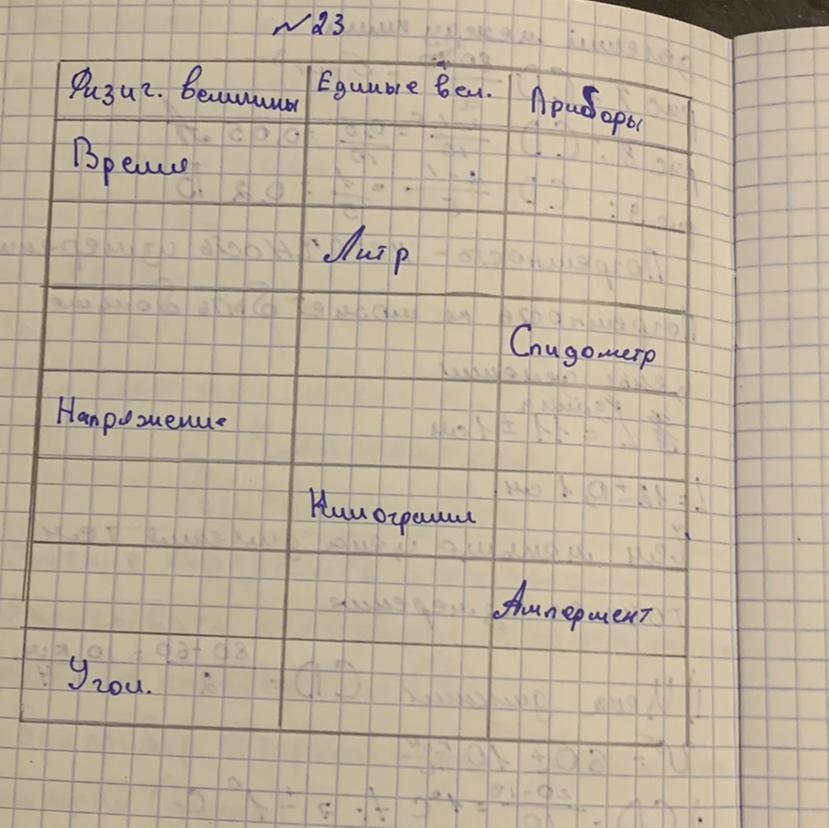 №23
Физич. величины Единые вел. Приборы
Время
Литр
Спидометр
Напряжение
Килограмм
Ампермент
Угол.